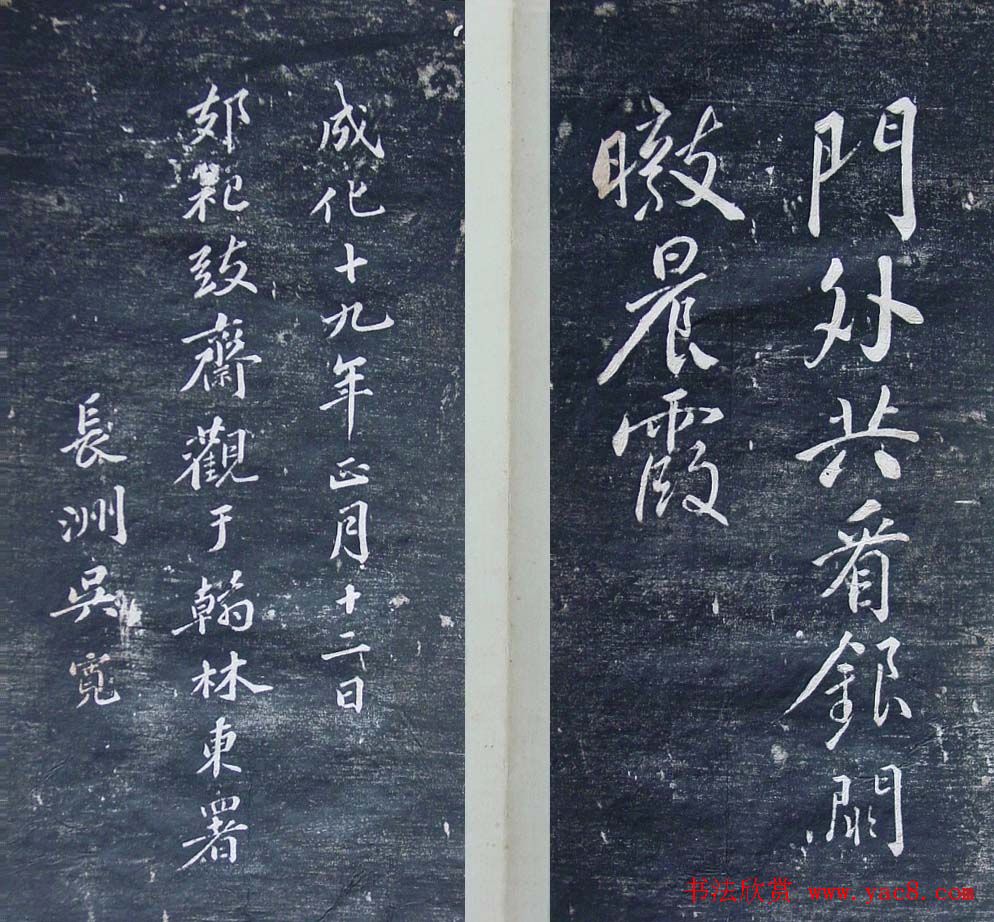 門外共看銀闕
瞰晨霞
成化十九年正月十二日
郊祀致齋觀于翰林東署
長洲吳寬
书法欣赏 www.yac8.com